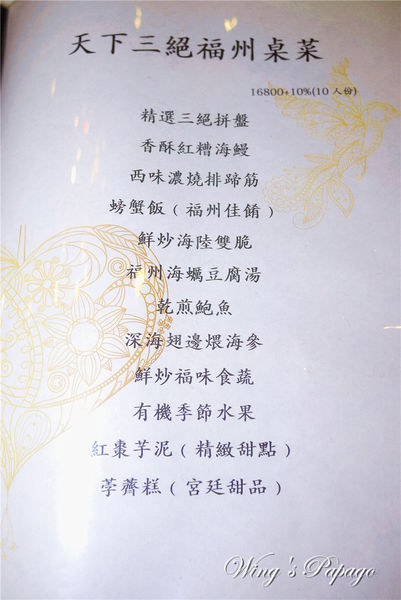 天下三絕福州桌菜
16800+10%(10人份)
精選三絕拼盤
香酥紅糟海鰻
西味濃燒排蹄筋
螃蟹飯（福州佳餚）
鮮炒海陸雙脆
福州海蠣豆腐湯
乾煎鮑魚
深海翅邊煨海參
鮮炒福味食蔬
有機季節水果
紅棗芋泥（精緻甜點）
荸薺糕（宮廷甜品）
Wing's Papago